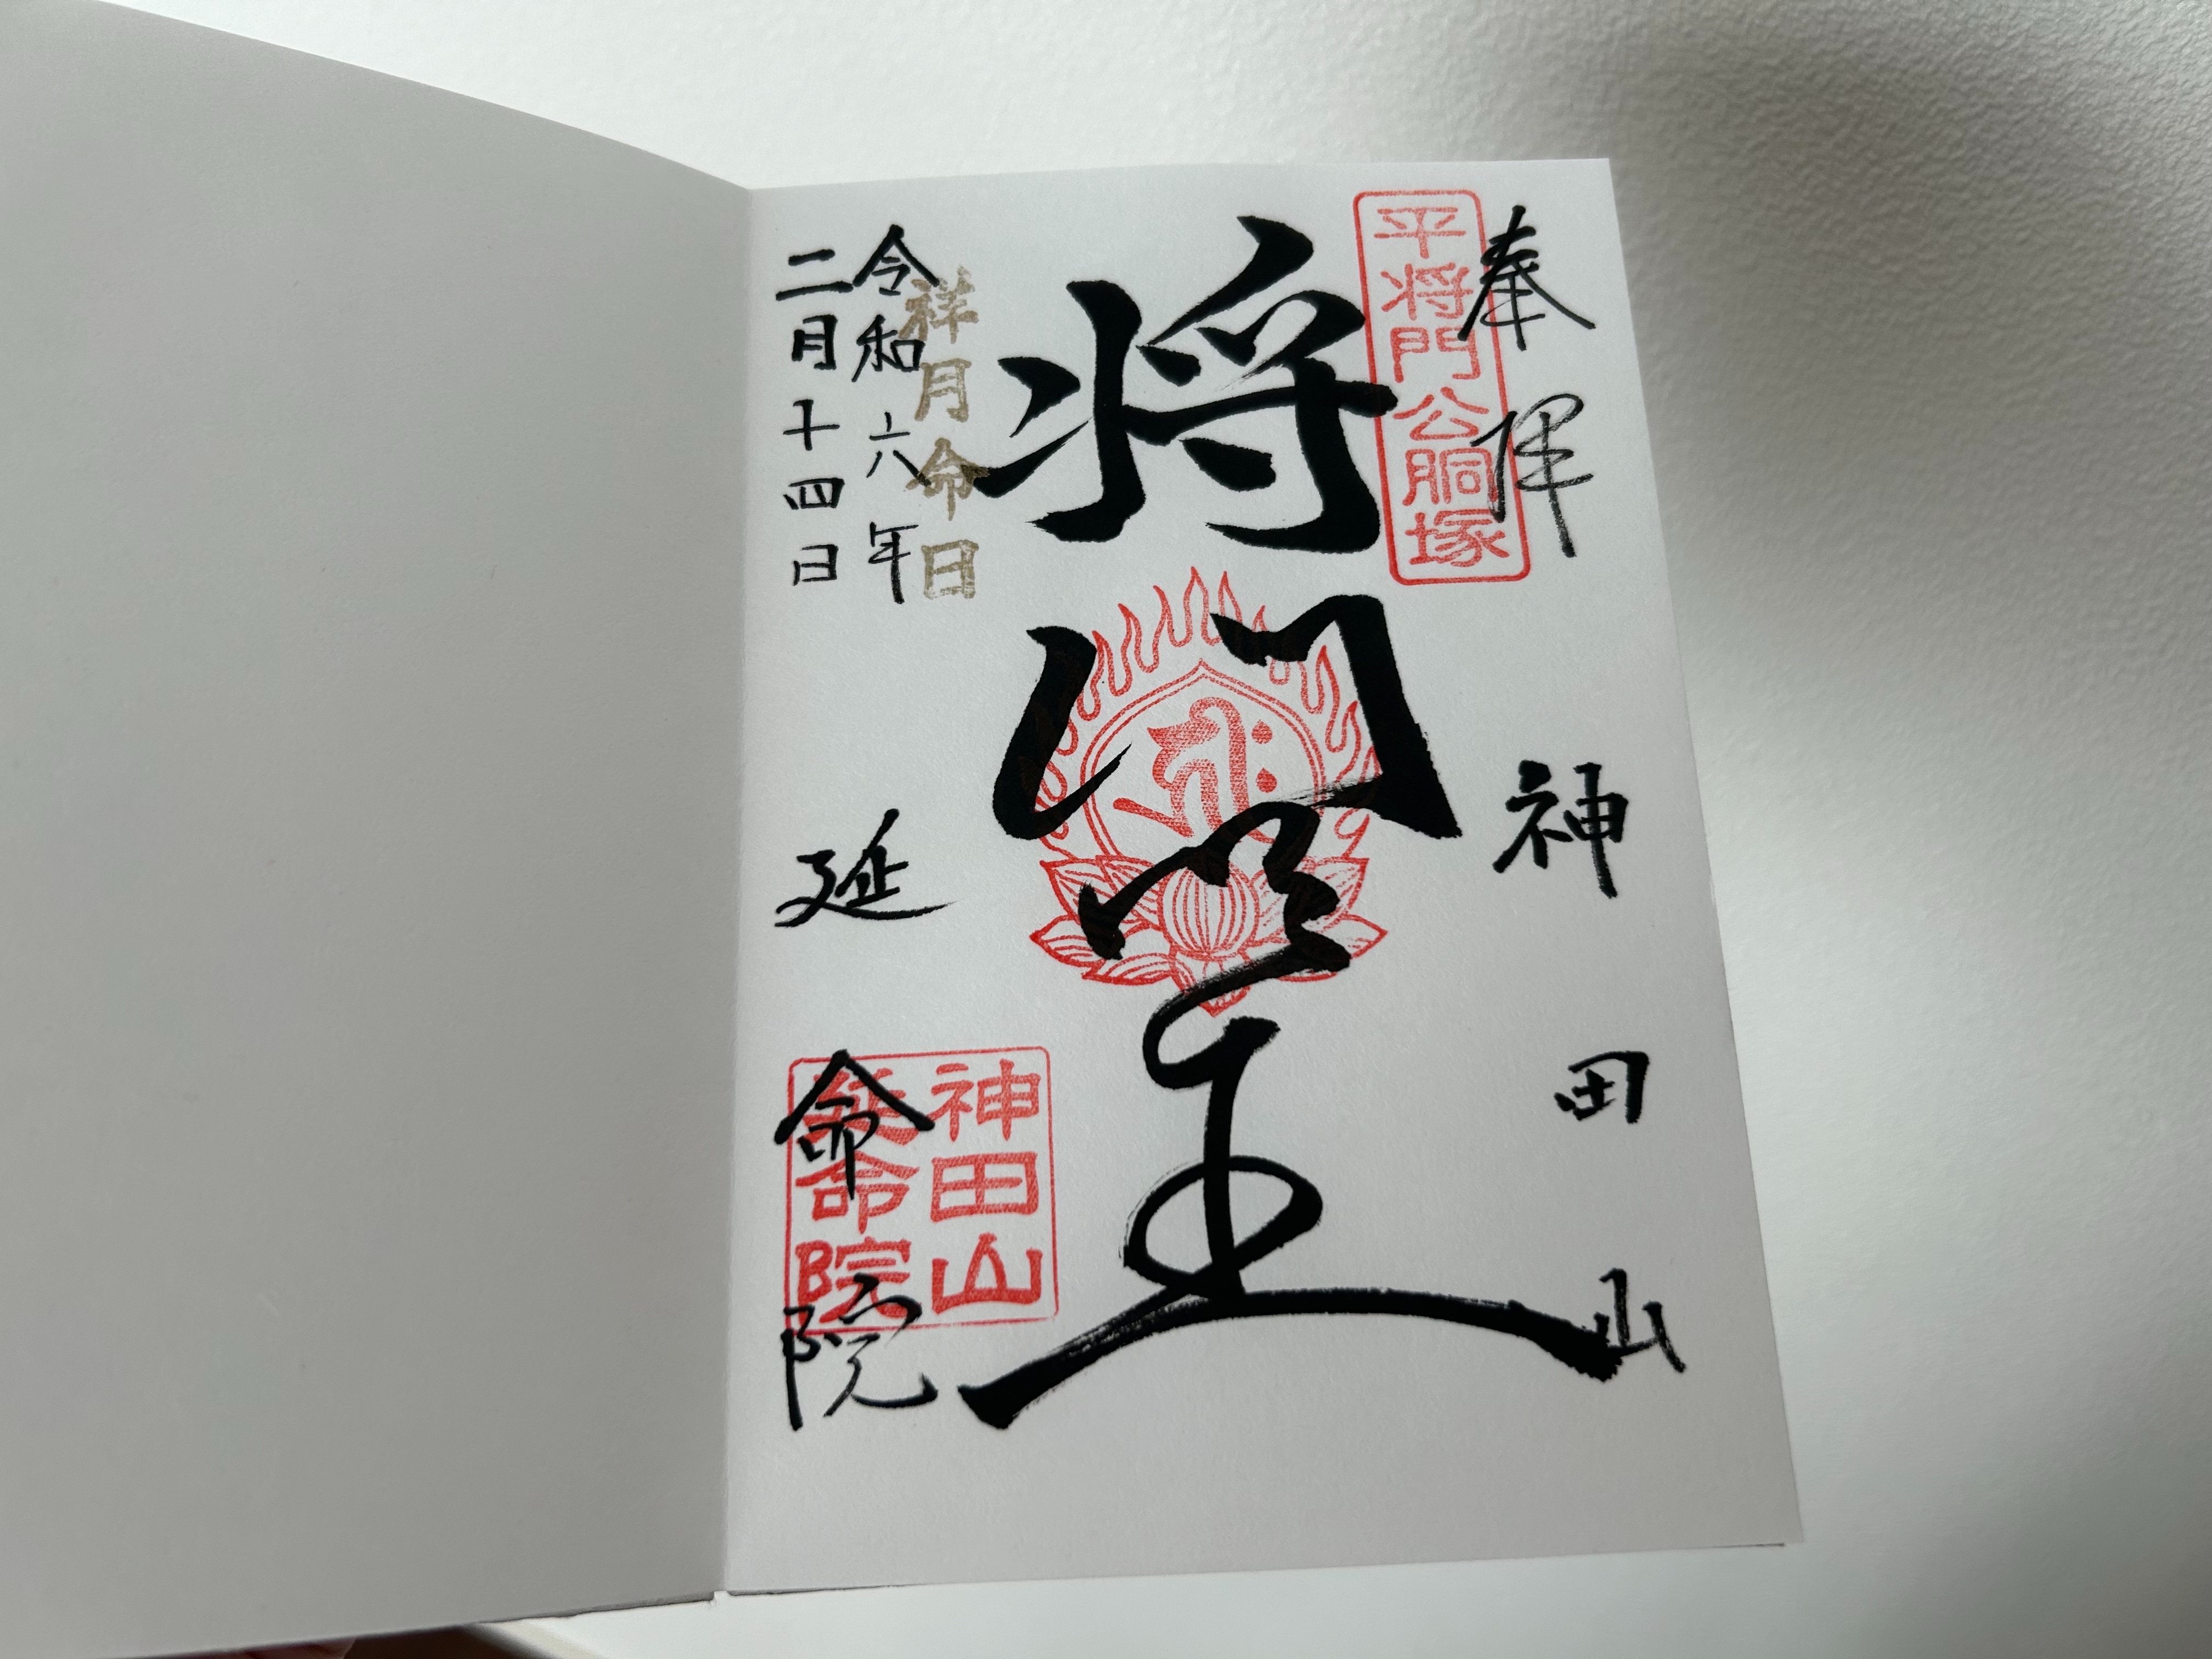 奉拝
平将門公胴塚
神田山
将門明王
祥月命日
令和六年
二月十四日
延命院
神田山
延命院